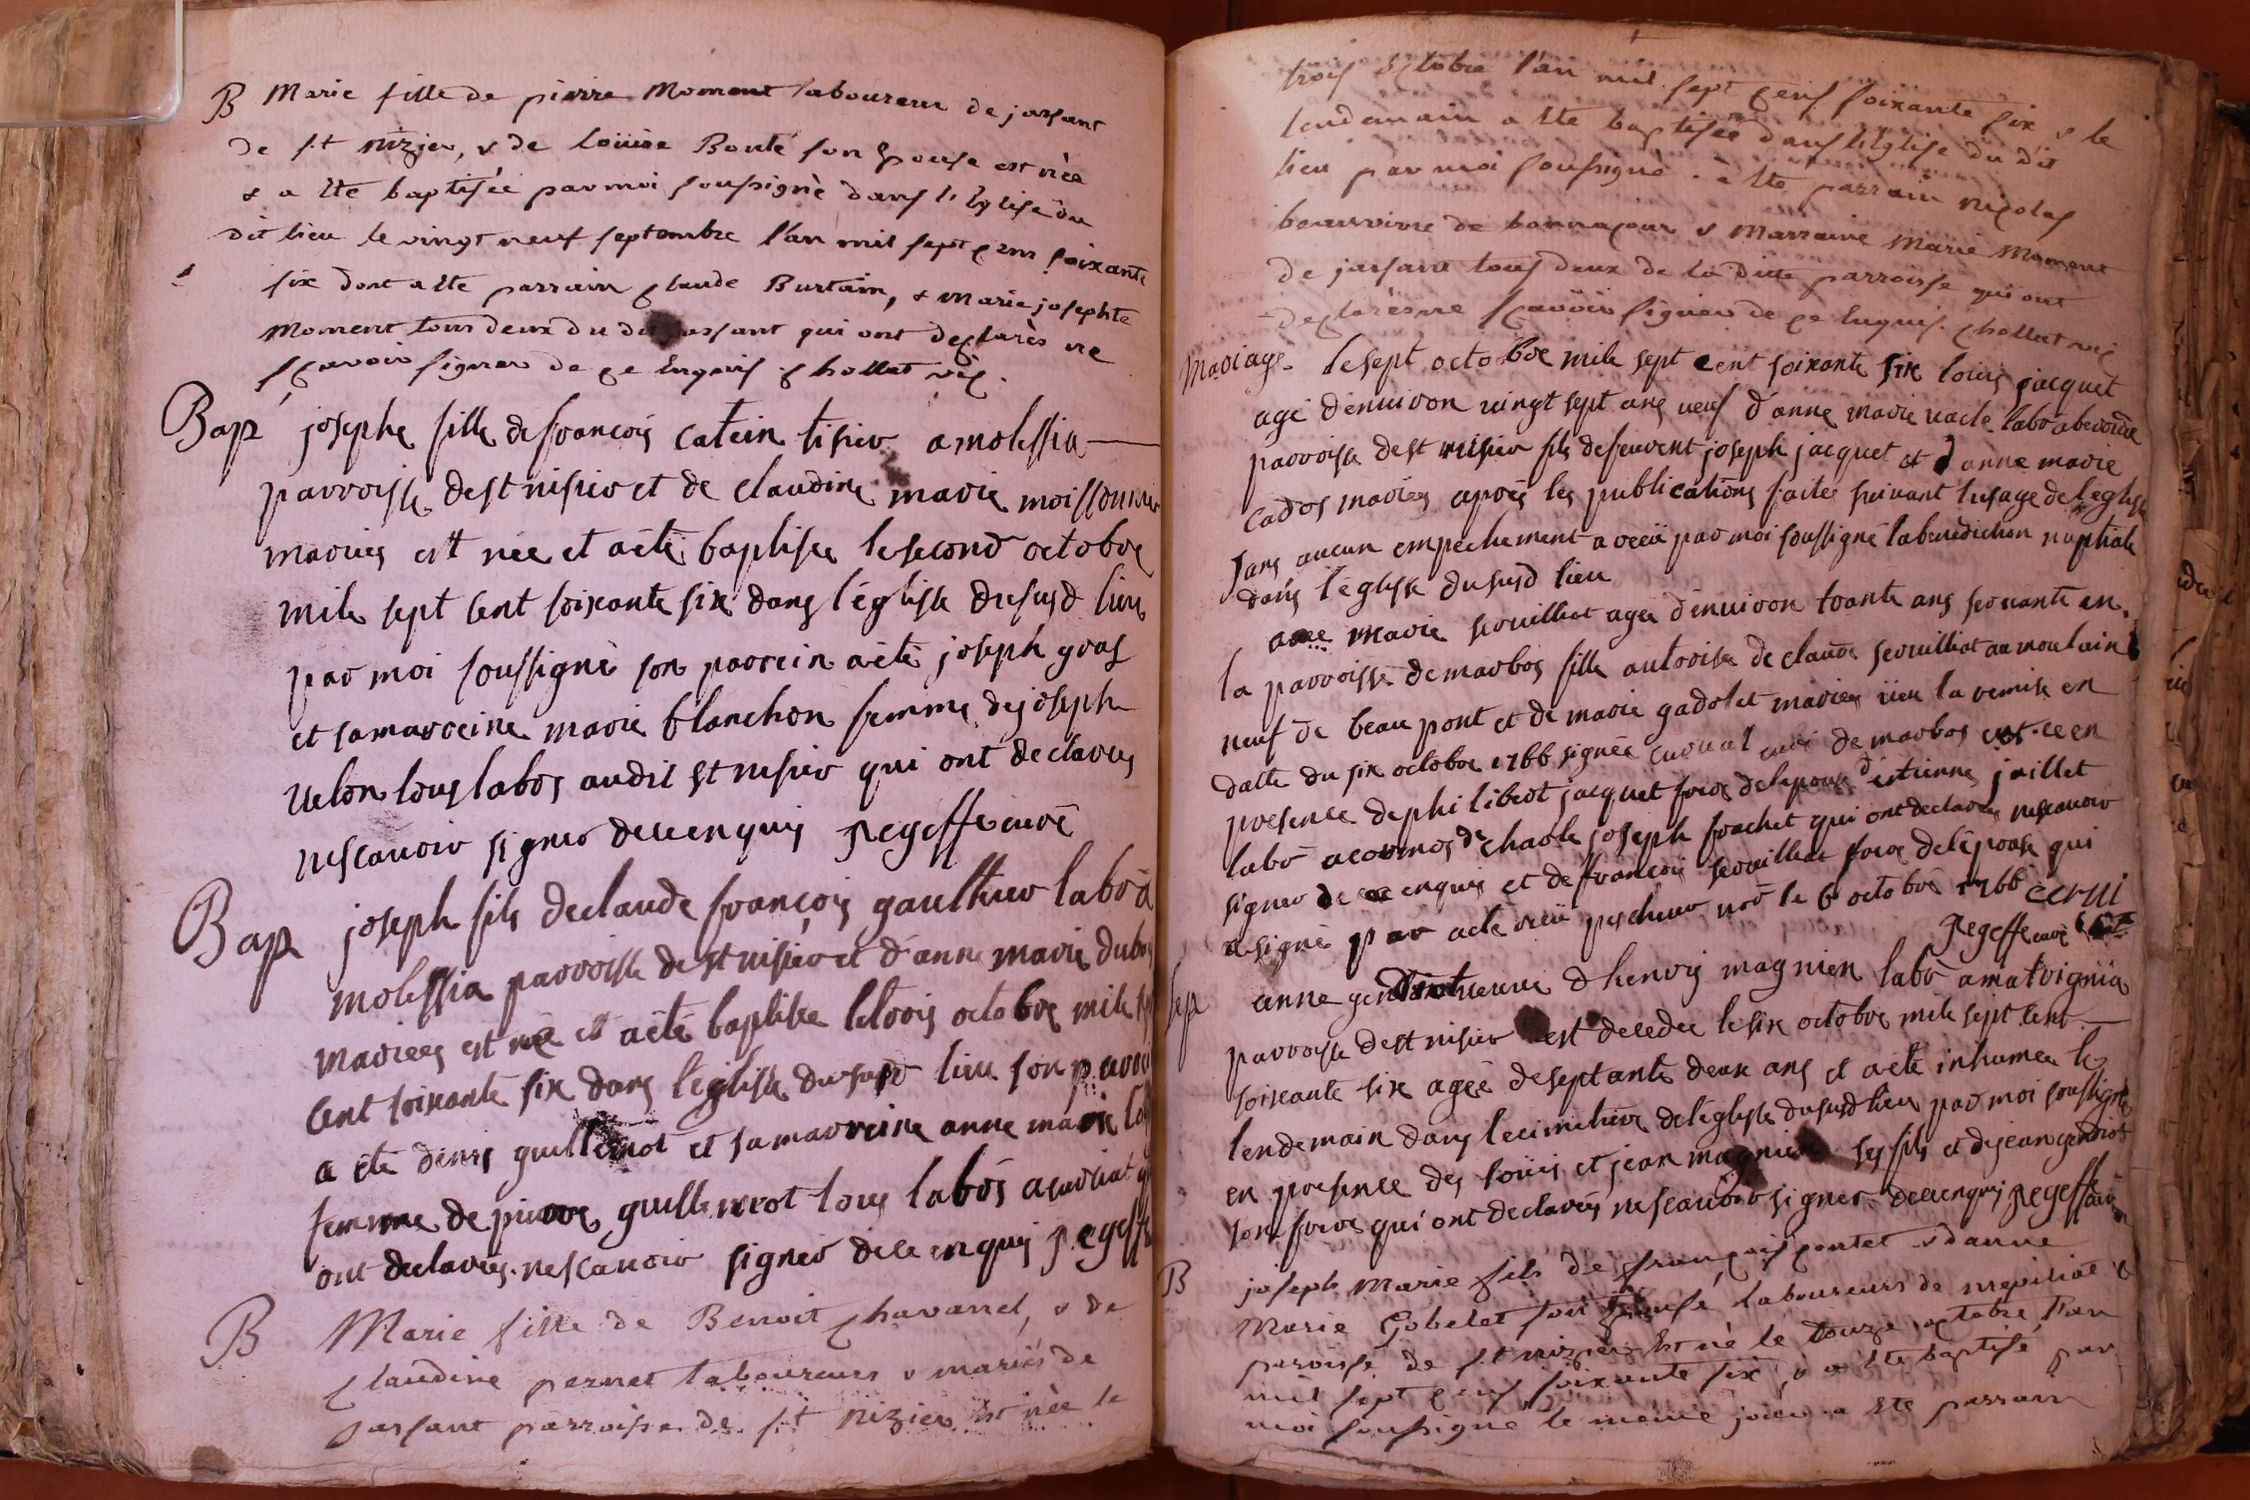 B Marie fille de pierre Moment laboureur de jassans
de s.t nizier, & de Loüise Bonté son Epouse est née
& a ete baptisée par moi soussigné dans l'Eglise du
dit lieu le vingt neuf septembre l'an mil sept cens soixante
six dont a ete parrain claude Burtain, & marie josephte
Moment tous deux du dit jassant qui ont declarés ne
sçavoir signer de ce Enquis. chollet vic.
Bap josephe fille de francois catein tisier a molessia
parroisse de st nisier et de claudine marie moissonnier
mariés est née et a été baptisée le second octobre
mile sept cent soixante six dans l'église du susd lieu
par moi soussigné son parrein a été joseph gras
et sa marreine marie blanchon femme de joseph
velon tous labos audit st nisier qui ont declarés
ne scavoir signer de ce enquis regeffe curé
Bap joseph fils de claude francois gaulthier labo a
molessia parroisse de st nisier et d'anne marie dubo
mariees est né et a été baptisée le trois octobre mile sep
cent soixante six dans l'église du susd lieu son parrei
a été denis guillemot et sa marreine anne marie
femme de pierre guillemot tous labos a qui
ont declarés ne scavoir signer de ce enquis regeffe
B Marie fille de Benoit chavanel, & de
claudine pernet laboureurs & mariés de
jassant parroisse de s.t nizier est née le
trois octobre l'an mil sept cens soixante six & le
lendemain a ete baptisée dans l'Eglise du dit
lieu par moi soussigné. a ete parrain nicolas
beauvoire de bonnacour & marraine Marie Moment
de jassant tous deux de la ditte parroisse qui ont
declarés ne sçavoir signer de ce Enquis. chollet vic
Mariage. le sept octobre mile sept cent soixante six louis jacquet
agé d'enuiron vingt sept ans veuf d'anne marie vacle labo
parroisse de st nisier fils de feuvent joseph jacquet et d'anne marie
cados mariés après les publications faites suivant l'usage de l'eglise
sans aucun empechement a reçü par moi soussigné la benediction nuptiale
dans l'église du susd lieu
anne marie seruilliat agée d'enuiron trante ans seruante en
la parroisse de marbos fille autorisée de claude seruilliat au moulain
neuf de beaupont et de marie gadolet mariés vüe la remise en
datte du six octobre 1766 signée curé de marbos et ce en
presence de philibert jacquet frere de l'epoux d'estienne jaillet
labo a de charle joseph frachet qui ont declarés ne scavoir
signer de ce enquis et de francois seruilliat frere de l'épouse qui
a signé par acte recü pescheur no le 6 octobre 1766
regeffe curé
Sep anne gendrot veuve d'henry magnien labo a matrignia
parroisse de st nisier est decedee le six octobre mile sept cent
soixante six agée de septante deux ans et a été inhumee le
lendemain dans le cimitiere de l'église du susd lieu par moi soussigné
en presence des loüis et jean magnien ses fils et de jean gendrot
son frere qui ont declarés ne scavoir signer de ce enquis regeffe curé
B joseph Marie fils de françois pontet & d'anne
Marie Gobelet son Epouse laboureurs de
paroisse de s.t nizier est né le douze octobre l'an
mil sept cens soixante six, & a ete baptisé par
moi soussigné le même jour a ete parrain